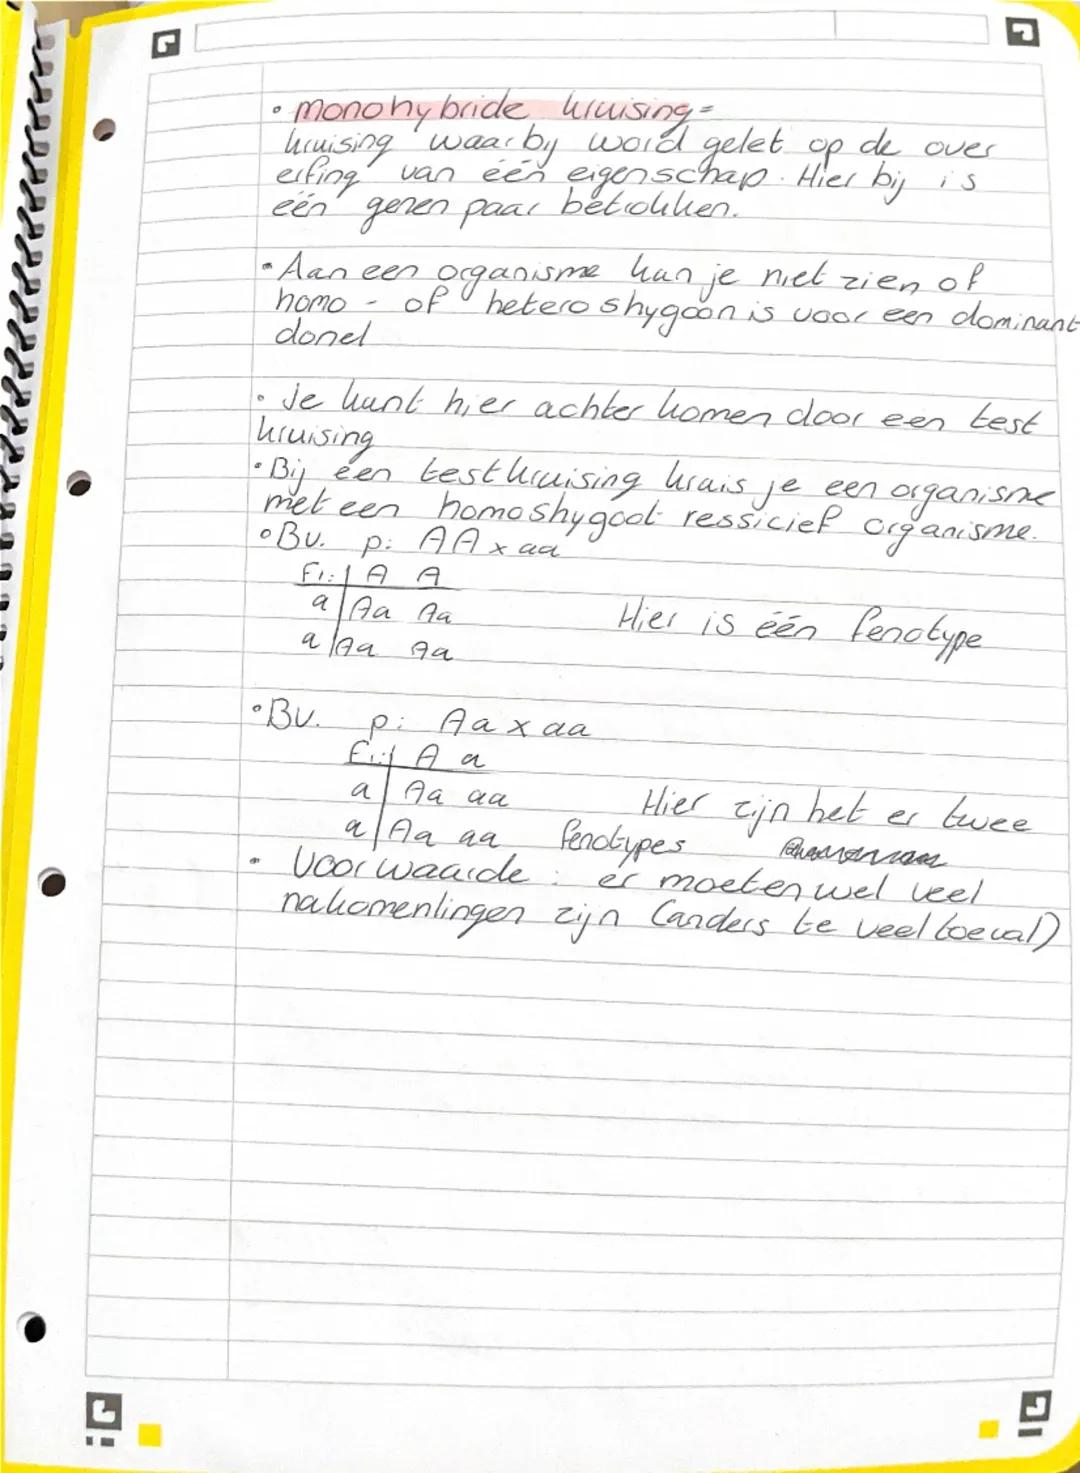 • monohybride kruising =
kruising waarby word gelet op de over
erfing van één eigenschap. Hier bij is
één genen paar betrokken.
• Aan een organisme kan je niet zien of
homo - of heteroshygoon is voor een dominant
donel
• Je kunt hier achter komen door een test
kruising
• Bij een testkruising krais je een organisme
met een homoshygoot ressicief organisme.
• Bv. p: AA x aa
F1: | A A
a | Aa Aa
Hier is één fenotype
a | Aa Aa
• Bv. p: Aa x aa
F1: | A a
a | Aa aa
Hier zijn het er twee
a | Aa aa fenotypes
• Voorwaarde : er moeten wel veel
nakomenlingen zijn (anders te veel toeval)